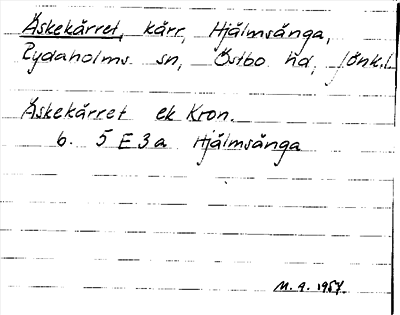 Äskekärret, kärr, Hjälmsänga,
Rydaholms sn, Östbo hd, Jönk.l
Äskekärret ek Kron.
6. 5 E 3 a Hjälmsänga
M. A. 1957.